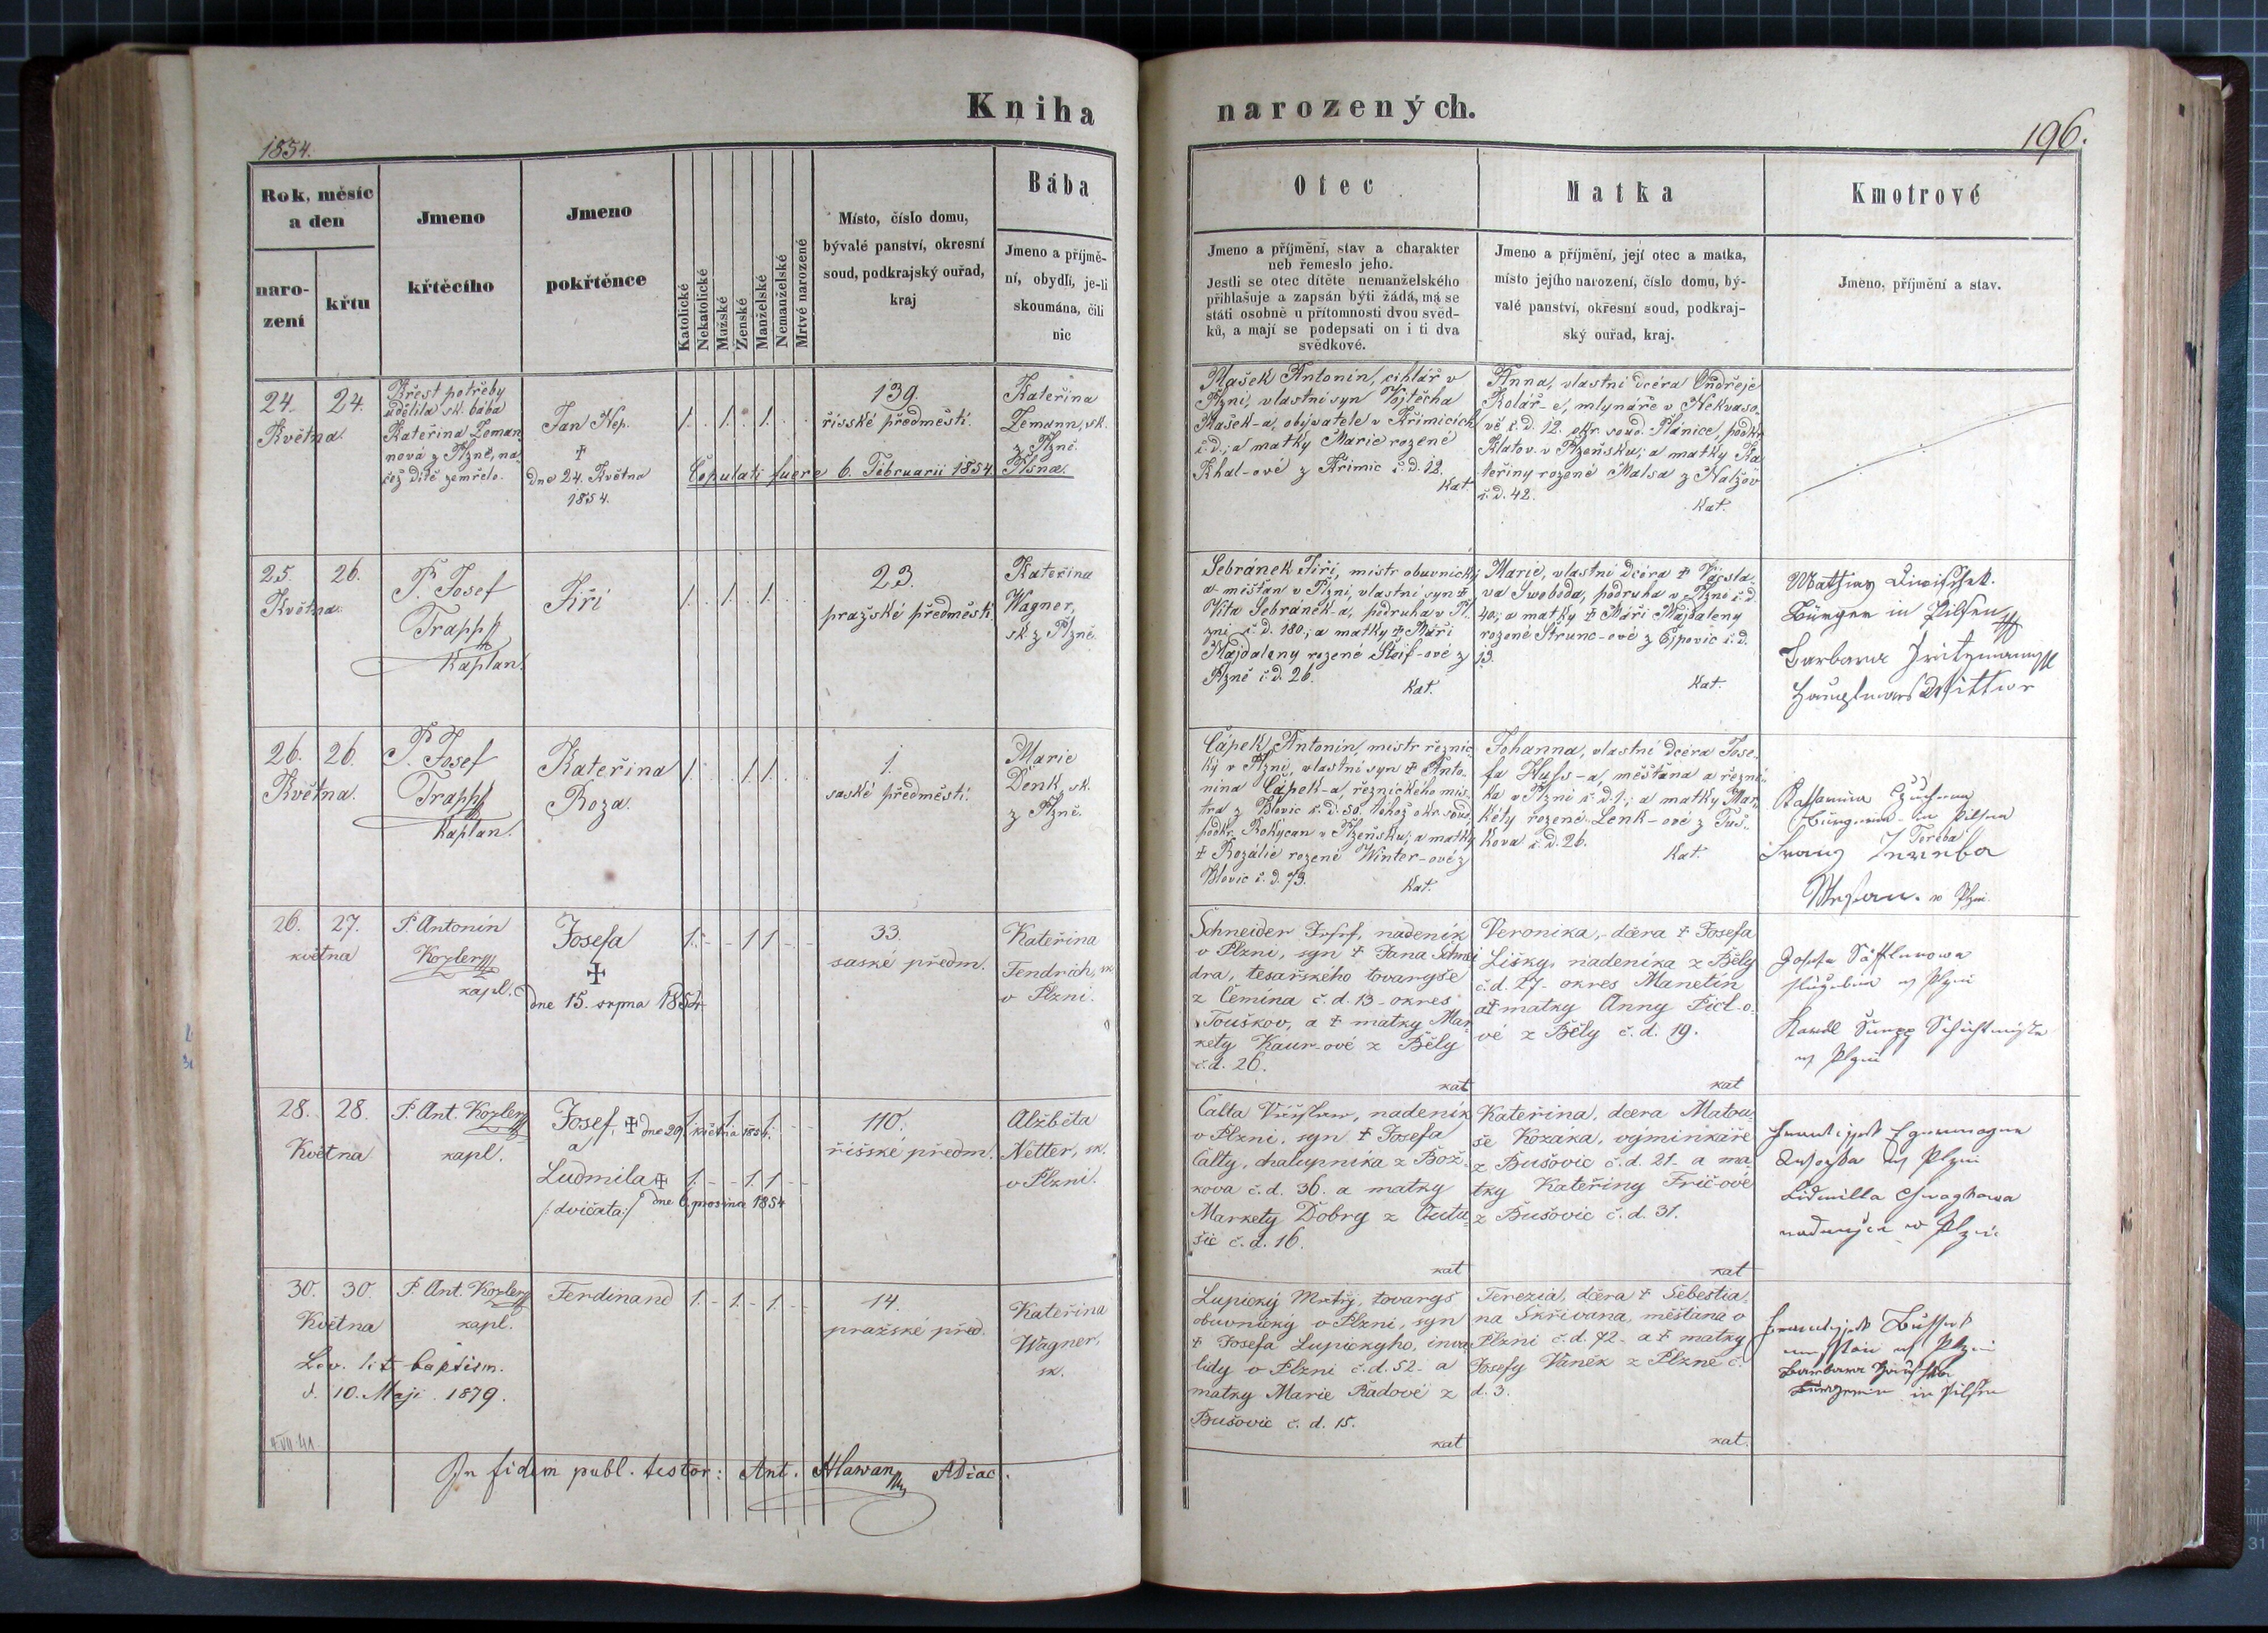 Kniha
narozených.
1854.
196.
Rok, měsíc
a den
naro-
zení
křtu
Jmeno
křtěcího
Jmeno
pokřtěnce
Katolické
Nekatolické
Mužské
Ženské
Manželské
Nemanželské
Mrtvé narozené
Místo, číslo domu,
bývalé panství, okresní
soud, podkrajský ouřad,
kraj
Bába
Jmeno a příjmě-
ní, obydlí, je-li
skoumána, čili
nic
Otec
Jmeno a příjmění, stav a charakter
neb řemeslo jeho.
Jestli se otec dítěte nemanželského
přihlašuje a zapsán býti žádá, má se
státi osobně u přítomnosti dvou svěd-
ků, a mají se podepsati on i ti dva
svědkové.
Matka
Jmeno a příjmění, její otec a matka,
místo jejího narození, číslo domu, bý-
valé panství, okresní soud, podkraj-
ský ouřad, kraj.
Kmotrové
Jmeno, příjmění a stav.
24. 24.
Května.
Křest potřeby
udělila sk. bába
Kateřina Zeman-
nová z Plzně, na-
čež dítě zemřelo.
Jan Nep.
†
dne 24. Května
1854.
1. . 1. . 1. . .
139.
říšské předměstí.
Copulati fuere 6. Februarii 1854 Plsnae.
Kateřina
Zemann, sk.
z Plzně.
Mašek Antonín, cihlář v
Plzni, vlastní syn Vojtěcha
Mašek-a, obývatele v Křimicích
č. d.; a matky Marie rozené
Khal-ové z Křimic č. d. 12.
Kat.
Anna, vlastní dcéra Ondřeje
Kolář-e, mlynáře v Nekvaso-
vě č. d. 12. okr. soud. Plánice, podkr.
Klatov. v Plzeňsku; a matky Ka-
teřiny rozené Malsa z Nalžov
č. d. 42.
Kat.
25. 26.
Května.
P. Josef
Trapp
Kaplan.
Jiří
1. . 1. . 1. . .
23.
pražské předměstí.
Kateřina
Wagner,
sk. z Plzně.
Sebránek Jiří, mistr obuvnický
a měšťan v Plzni, vlastní syn †
Víta Sebránek-a, podruha v Pl-
zni č. d. 180.; a matky † Máří
Majdaleny rozené Steif-ové z
Plzně č. d. 26.
Kat.
Marie, vlastní dcéra † Věcsla-
va Swoboda, podruha v Plzni č. d.
40.; a matky † Máří Majdaleny
rozené Strunc-ové z Ejpovic č. d.
13.
Kat.
Bürger in Pilsen
Barbara
26. 26.
Května.
P. Josef
Trapp
Kaplan.
Kateřina
Roza.
1. . . 1. 1. . .
1.
saské předměstí.
Marie
Denk, sk.
z Plzně.
Čápek Antonín, mistr řeznic-
ký v Plzni, vlastní syn † Anto-
nína Čápek-a, řeznického mis-
tra z Blovic č. d. 50. téhož okr. soud.,
podkr. Rokycan v Plzeňsku; a matky
† Rozálie rozené Winter-ové z
Blovic č. d. 73.
Kat.
Johanna, vlastní dcéra Jose-
fa Huss-a, měšťana a řezní-
ka v Plzni č. d. 1.; a matky Mar-
kéty rozené Lenk-ové z Tuš-
kova č. d. 26.
Kat.
in Pilsen
Tereba
Franz
w Plzni.
26. 27.
května
P. Antonín
Kozler
kapl.
Josefa
†
dne 15. srpna 1854
1. - - 1 1 - -
33.
saské předm.
Kateřina
Tendrich, sk.
v Plzni.
Schneider Josef, nadeník
v Plzni, syn † Jana Schnei-
dra, tesařského tovaryše
z Čemína č. d. 13 - okres
Touškov, a † matky Mar-
kety Kaur-ové z Běly
č. d. 26.
kat
Veronika, dcera † Josefa
Lišky, nadeníka z Běly
č. d. 27 - okres Manetín
a † matky Anny Picl-o-
vé z Běly č. d. 19.
kat
w Plzni
w Plzni
28. 28.
Května
P. Ant. Kozler
kapl.
Josef, † dne 29. května 1854.
a
Ludmila †
/: dvičata :/ dne 6. prosince 1854
1. - 1. - 1. - -
1. - - 1. 1 - -
110.
říšské předm.
Alžběta
Netter, sk.
v Plzni.
Čalta Václav, nadeník
v Plzni, syn † Josefa
Čalty, chalupníka z Bož-
kova č. d. 36. a matky
Markety Dobry z Qutu-
šic č. d. 16.
kat
Kateřina, dcera Matou-
še Kozáka, výminkáře
z Bušovic č. d. 21 - a ma-
tky Kateřiny Frič-ové
z Bušovic č. d. 31.
kat
w Plzni
Lidmilla
w Plzni
30. 30.
Května
P. Ant. Kozler
kapl.
Lev. lit. baptism.
d. 10. Maji 1879.
Ferdinand
1. - 1. - 1. - -
14.
pražské před.
Kateřina
Wagner,
sk.
Lupický Matěj, tovaryš
obuvnický v Plzni, syn
† Josefa Lupickyho, inva-
lidy v Plzni č. d. 52 - a
matky Marie Řádové z
Bušovic č. d. 15.
kat
Terezia, dcera † Sebestia-
na Skřivana, měšťana v
Plzni č. d. 72 - a † matky
Josefy Vaněk z Plzně č.
d. 3.
kat.
w Plzni
Barbara
in Pilsen
4 VII 41
In fidem publ. testor: Ant. Hlawan